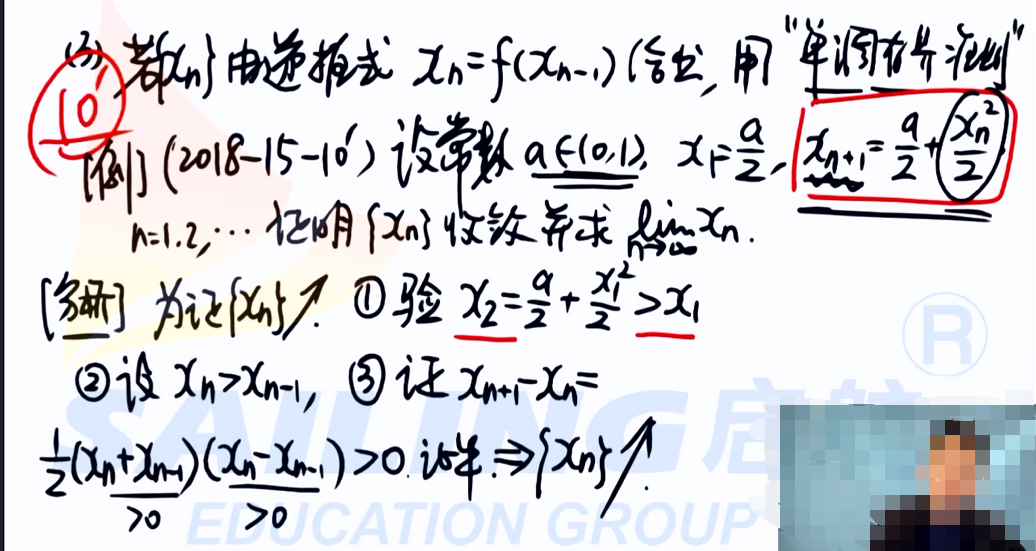 (3) 若{xₙ}由递推式 xₙ=f(xₙ₋₁)给出, 用"单调有界准则"
10'
[例] (2018-15-10') 设常数 a∈(0,1), x₁=a/2, xₙ₊₁=a/2+xₙ²/2
n=1.2,… 证明{xₙ}收敛并求 lim n→∞ xₙ.
[分析] 为证{xₙ}↗. ①验 x₂=a/2+x₁²/2>x₁
②设 xₙ>xₙ₋₁, ③证 xₙ₊₁-xₙ=
1/2(xₙ+xₙ₋₁)(xₙ-xₙ₋₁)>0. 证毕.⇒{xₙ}↗.
>0 >0
SAILING 启航 ®
EDUCATION GROUP